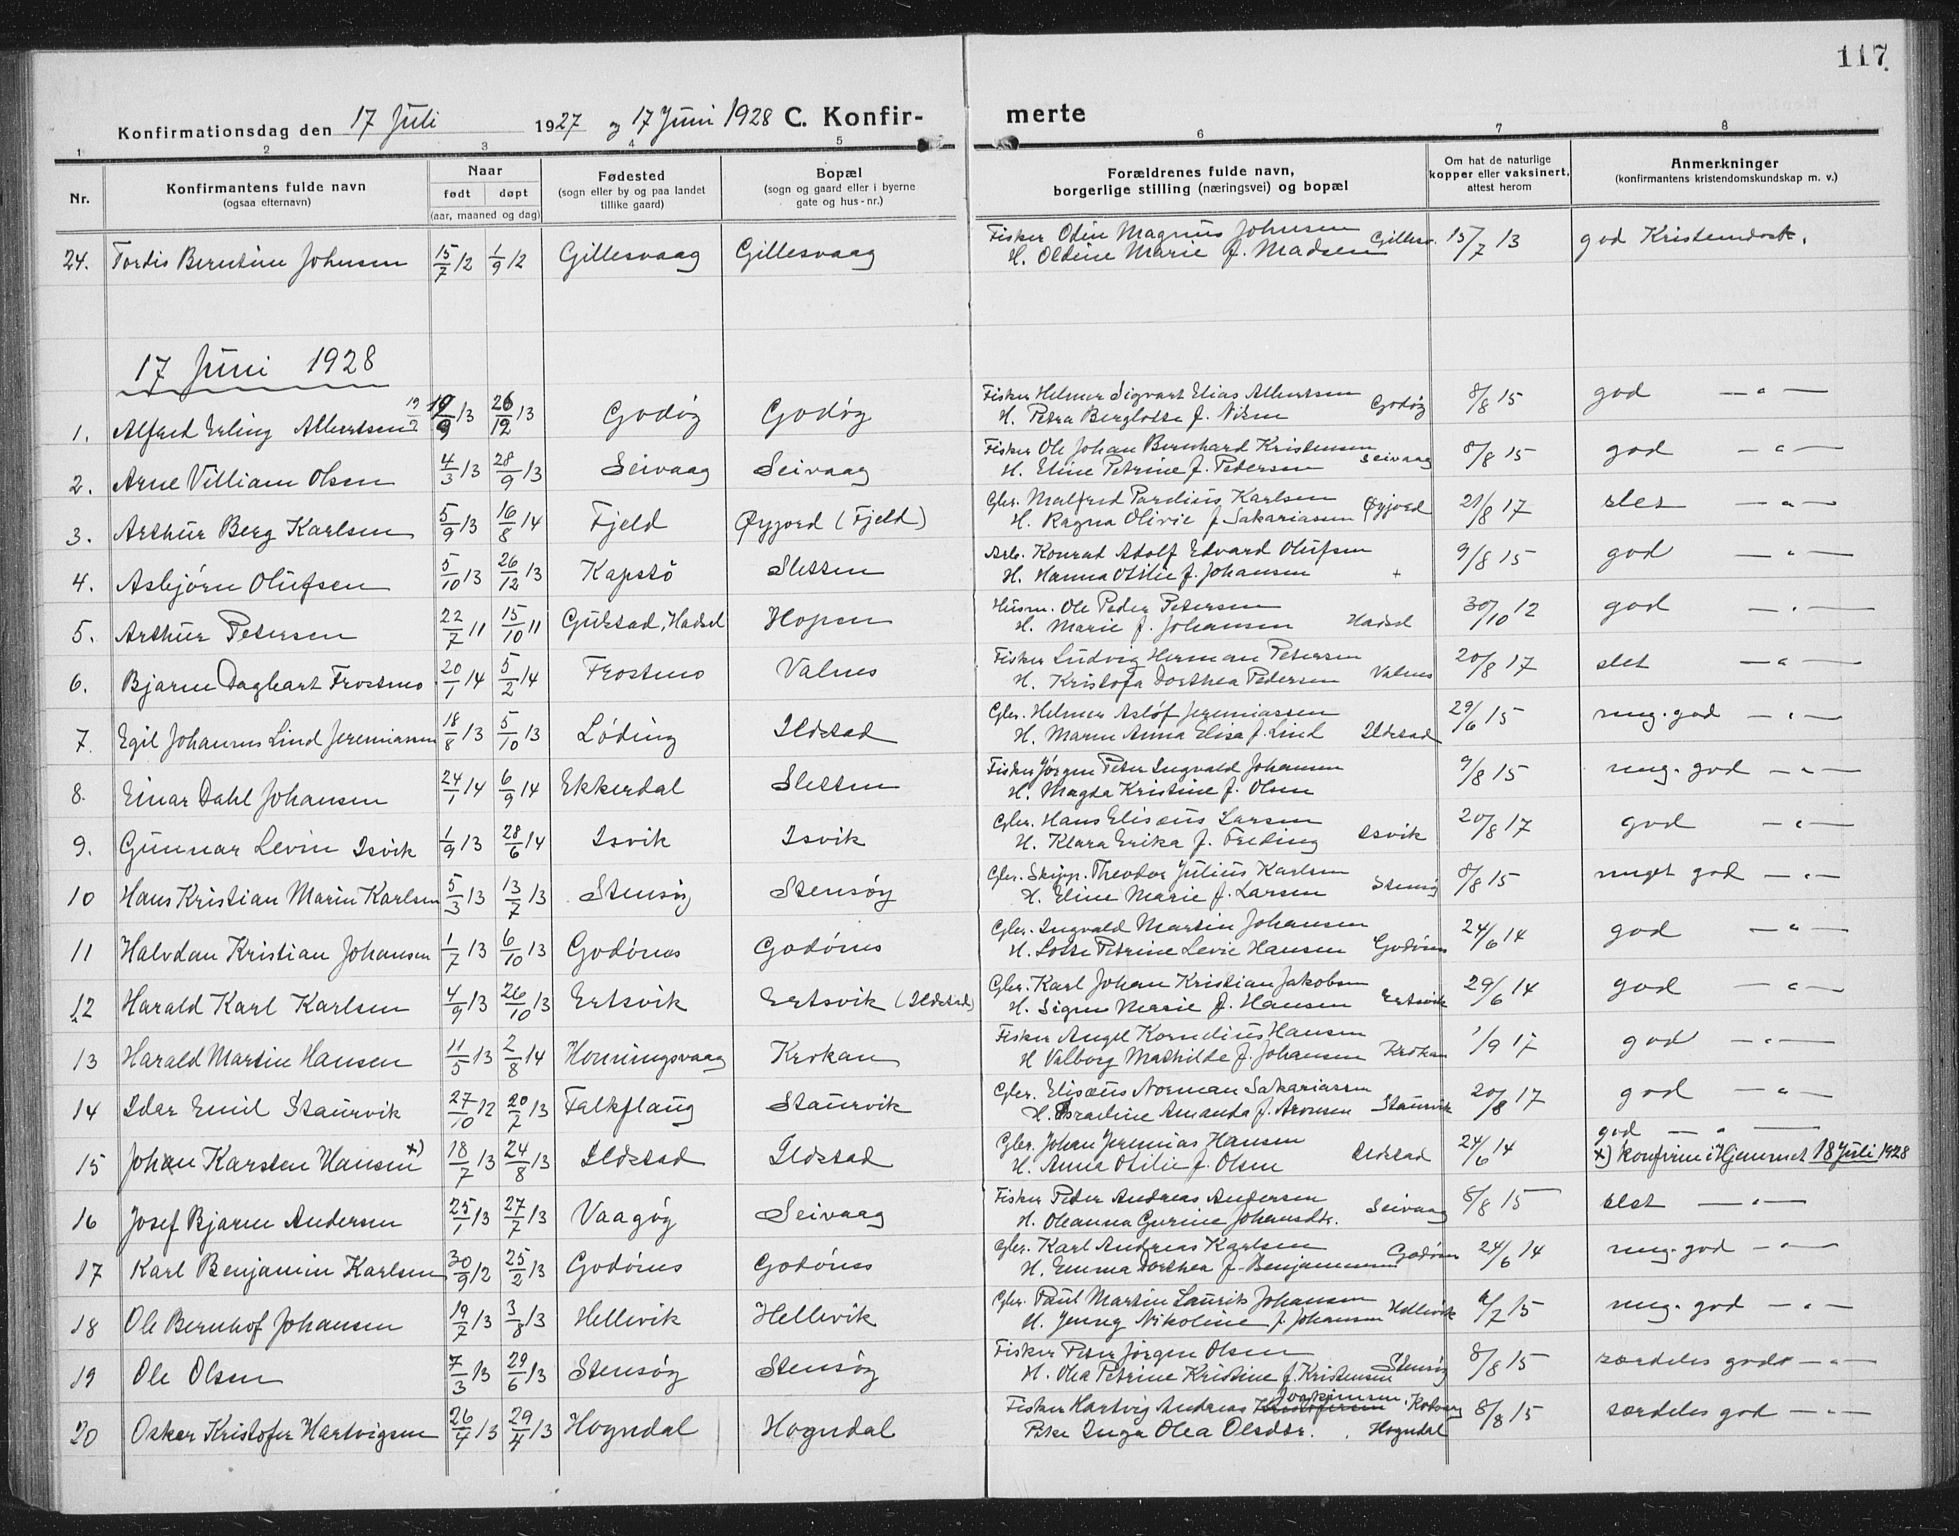 117.
Konfirmationsdag den 17 Juli 1927 og 17 Juni 1928 C. Konfirmerte
1 2 3 4 5 6 7 8
Nr. Konfirmantens fulde navn (ogsaa efternavn) Naar født døpt (aar, maaned og dag) Fødested (sogn eller by og paa landet tillike gaard) Bopæl (sogn og gaard eller i byerne gate og hus-nr.) Forældrenes fulde navn, borgerlige stilling (næringsvei) og bopæl Om hat de naturlige kopper eller vaksinert, attest herom Anmerkninger (konfirmantens kristendomskundskap m. v.)
24. Tordis Berntine Johnsen 15/7 12 1/9 12 Gillesvaag Gillesvaag Fisker Odin Magnus Johnsen Gillesv. 15/7 13 god Kristendosk.
H. Oldine Marie f. Madsen
17 Juni 1928
1. Alfred Erling Albertsen 13 26/12 13 Godøy Godøy Fisker Helmer Sigvart Elias Albertsen Godøy 8/8 15 god — " —
H. Petra Berglotte f. Nilsen
2. Arne Villiam Olsen 4/3 13 28/9 13 Seivaag Seivaag Fisker Ole Johan Bernhard Kristensen Seivaag 8/8 15 god — " —
H. Eline Petrine f. Pedersen
3. Arthur Berg Karlsen 5/9 13 16/8 14 Fjeld Øyjord (Fjeld) Gbr. Malfred Pardius Karlsen Øyjord 21/8 17 slet — " —
H. Ragna Olivie f. Sakariassen
4. Asbjørn Olufsen 5/10 13 26/12 13 Kapstø Sletten Arb. Konrad Adolf Edvard Olufsen 9/8 15 god — " —
H. Hanna Otilie f. Johansen +
5. Arthur Petersen 22/7 11 15/10 11 Gulstad, Hadsel Hopen Husm. Ole Peder Petersen Hadsel 30/10 12 god — " —
H. Marie f. Johansen
6. Bjarne Dagbart Frostmo 20/1 14 5/2 14 Frostmo Valnes Fisker Ludvig Herman Petersen Valnes 20/8 17 slet — " —
H. Kristofa Dorthea Pedersen
7. Egil Johannes Lind Jeremiassen 18/8 13 5/10 13 Løding Ildstad Gbr. Helmer Asløf Jeremiassen 29/6 15 meg. god — " —
H. Maren Anna Elisa f. Lind Ildstad
8. Einar Dahl Johansen 24/1 14 6/9 14 Ekkerdal Sletten Fisker Jørgen Peter Ingvald Johansen 9/8 15 meg. god — " —
H. Magda Kristine f. Olsen
9. Gunnar Levin Isvik 1/9 13 28/6 14 Isvik Isvik Gbr. Hans Elisæus Larsen Isvik 20/8 17 god — " —
H. Klara Erika f. Freding
10 Hans Kristian Marin Karlsen 5/3 13 13/7 13 Stensøy Stensøy Gbr. Skipp. Theodor Julius Karlsen Stensøy 8/8 15 meget god — " —
H. Eline Marie f. Larsen
11 Halvdan Kristian Johansen 1/7 13 6/10 13 Godønes Godønes Gbr. Ingvald Martin Johansen 24/6 14 god — " —
H. Lotte Petrine Levie Hansen Godønes
12 Harald Karl Karlsen 4/9 13 26/10 13 Ertsvik Ertsvik (Ildstad) Gbr. Karl Johan Kristian Jakobsen 29/6 14 god — " —
H. Signe Marie f. Hansen Ertsvik
13 Harald Martin Hansen 11/5 13 2/8 14 Honningsvaag Krokan Fisker Angel Kornelius Hansen 1/9 17 god — " —
H Valborg Mathilde f. Johansen Krokan
14 Idar Emil Staurvik 27/10 12 20/7 13 Falkflaug Staurvik Gbr. Elisæus Norman Sakariassen 20/8 17 god — " —
H. Israeline Amanda f. Aronsen Staurvik
15 Johan Karsten Hansen x) 18/7 13 24/8 13 Ildstad Ildstad Gbr. Johan Jeremias Hansen Ildstad 24/6 14 god — " —
H. Anna Otilie f. Olsen x) konfirm i Hjemmet 18 Juli 1928
16 Josef Bjarne Andersen 25/1 13 27/7 13 Vaagøy Seivaag Fisker Peder Andreas Andersen Seivaag 8/8 15 slet — " —
H. Oleanna Gurine Johansdtr.
17 Karl Benjamin Karlsen 30/9 12 25/2 13 Godønes Godønes Gbr. Karl Andreas Karlsen Godønes 24/6 14 meg. god — " —
H. Emma Dorthea f. Benjaminsen
18 Ole Bernhof Johansen 19/2 13 3/8 13 Hellivik Hellivik Gbr. Paul Martin Laurits Johansen Hellivik /7 15 meg. god — " —
H. Jenny Nikoline f. Johansen
19 Ole Olsen 7/3 13 29/6 13 Stensøy Stensøy Fisker Peter Jørgen Olsen Stensøy 8/8 15 særdeles godt — " —
H. Olea Petrine Kristine f. Kristensen
20 Oskar Kristofer Hartvigsen 26/ 13 29/4 13 Hogndal Hogndal Fisker Hartvig Andreas Kristofersen Joakimsen 8/8 15 særdeles god — " —
Pike Inga Olea Olsdtr. Hogndal